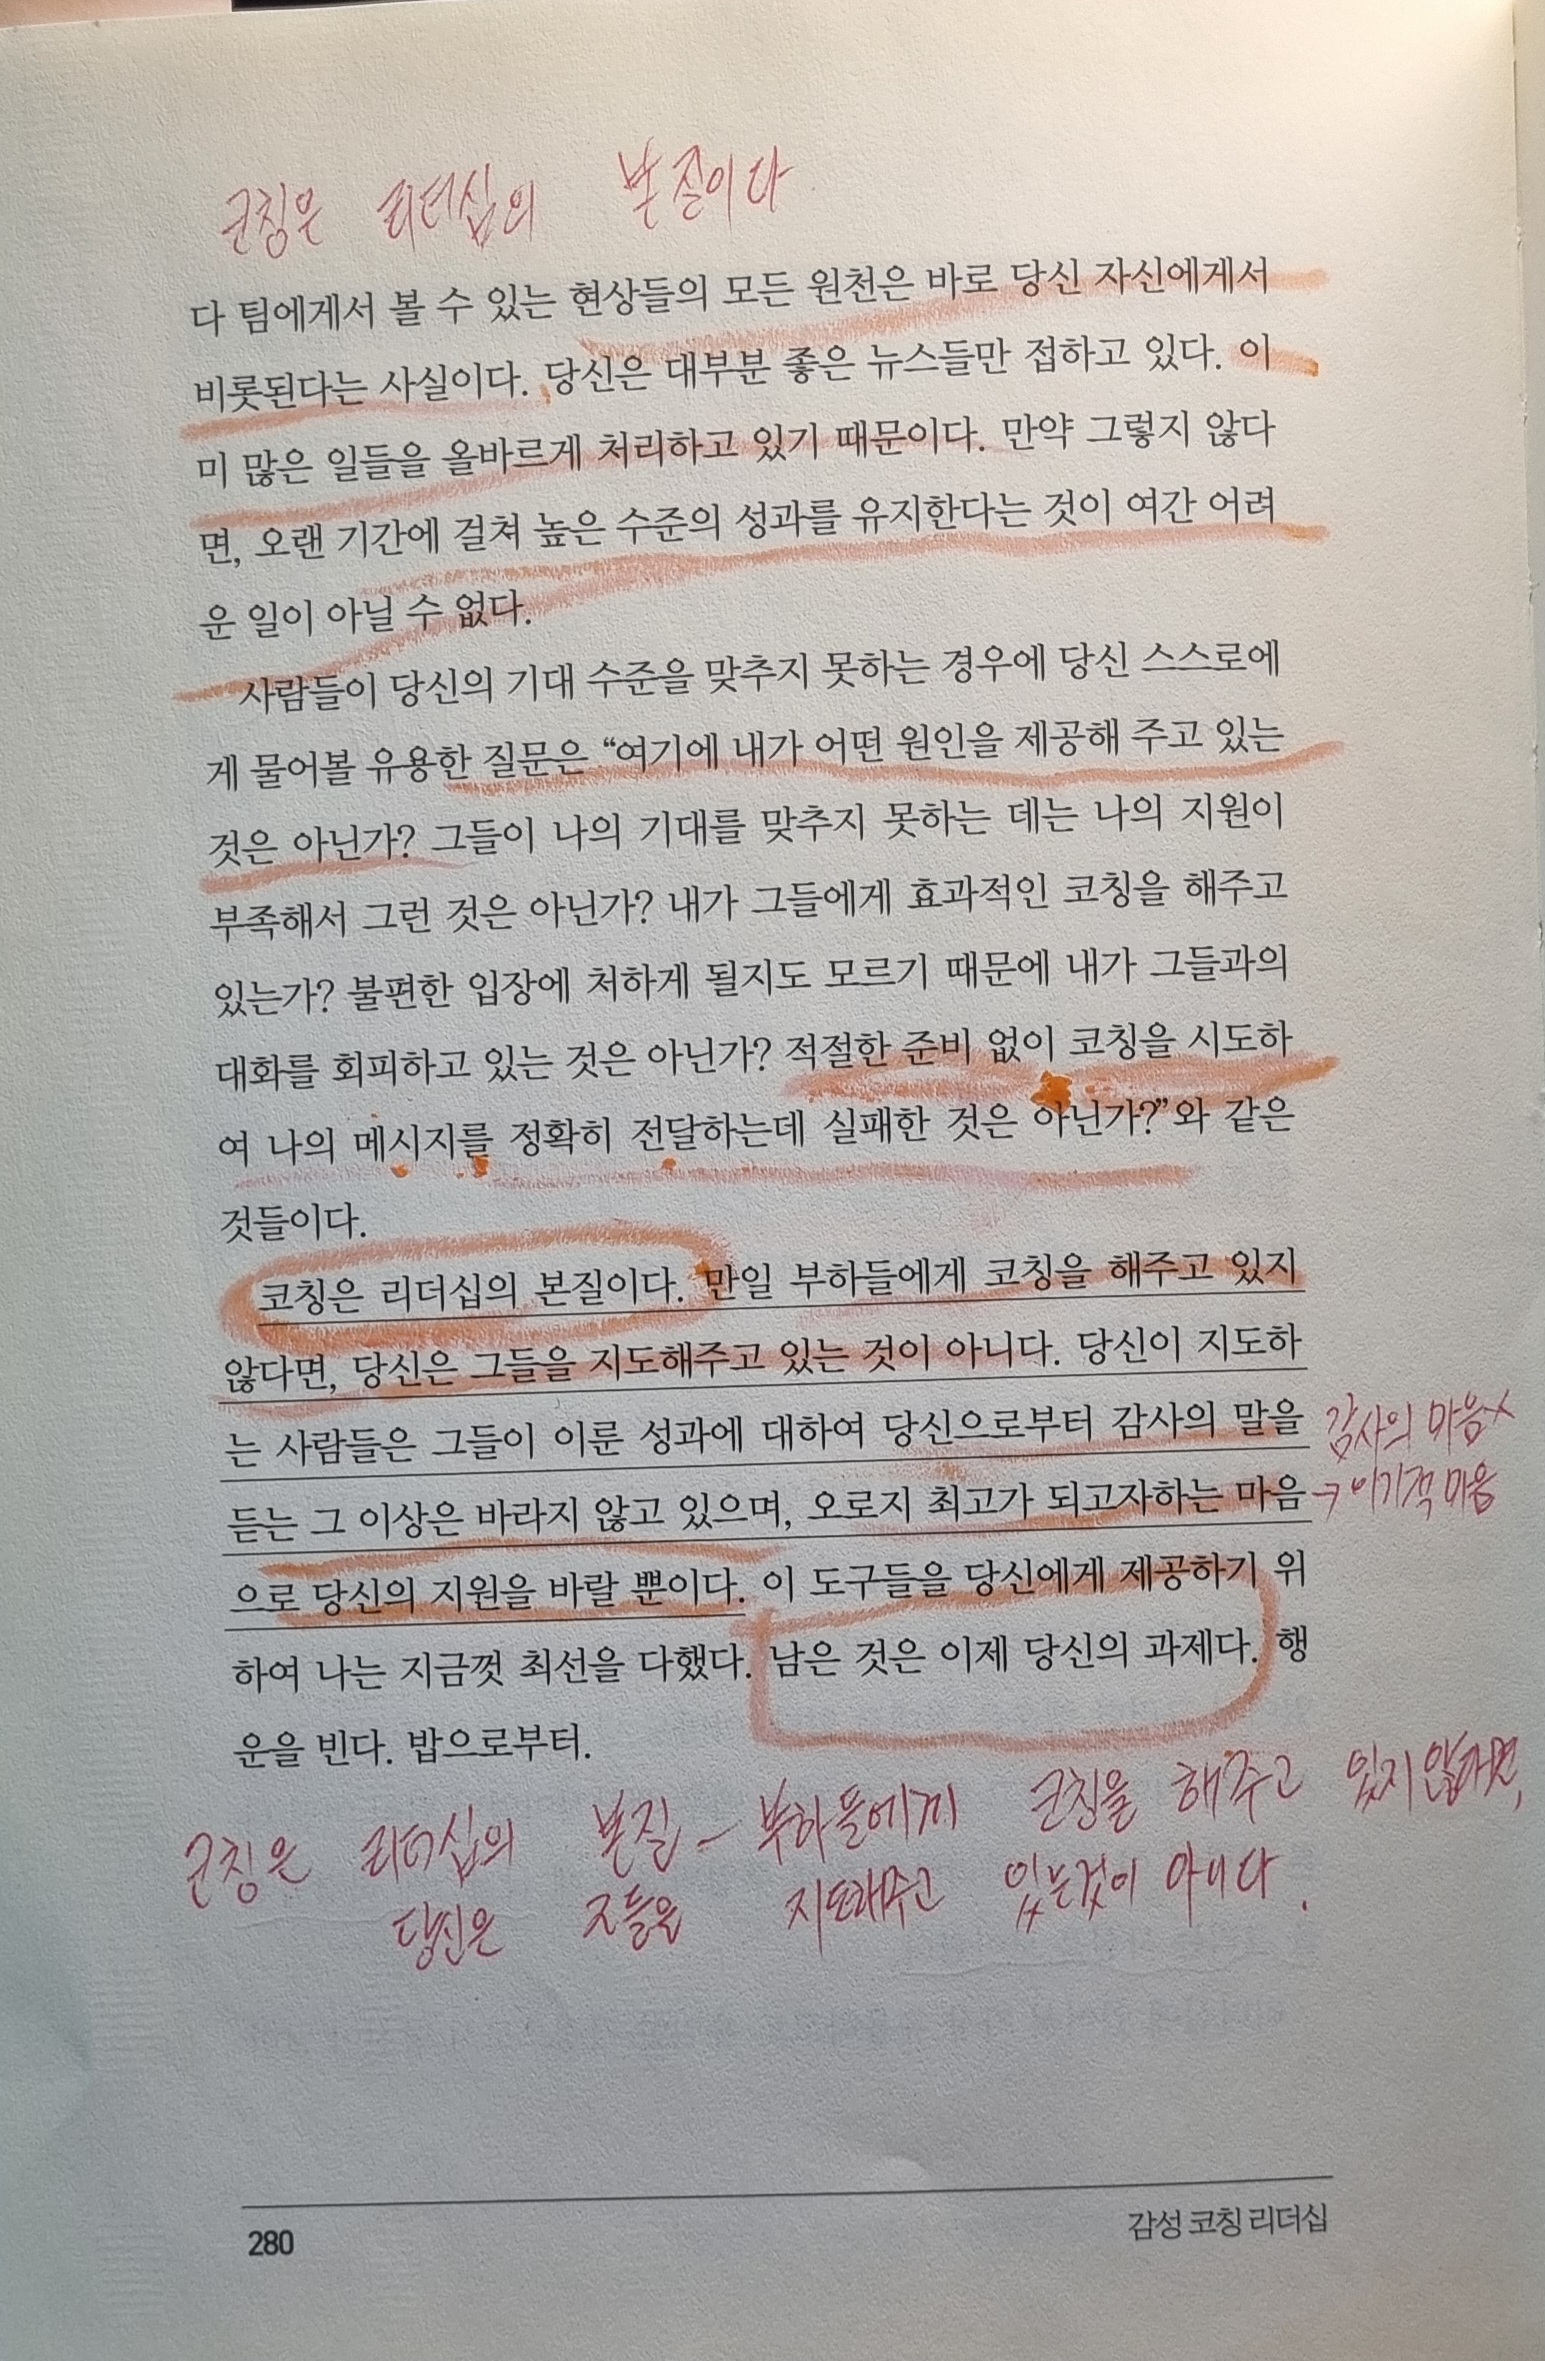 코칭은 리더십의 본질이다
다 팀에게서 볼 수 있는 현상들의 모든 원천은 바로 당신 자신에게서
비롯된다는 사실이다. 당신은 대부분 좋은 뉴스들만 접하고 있다. 이
미 많은 일들을 올바르게 처리하고 있기 때문이다. 만약 그렇지 않다
면, 오랜 기간에 걸쳐 높은 수준의 성과를 유지한다는 것이 여간 어려
운 일이 아닐 수 없다.
사람들이 당신의 기대 수준을 맞추지 못하는 경우에 당신 스스로에
게 물어볼 유용한 질문은 “여기에 내가 어떤 원인을 제공해 주고 있는
것은 아닌가? 그들이 나의 기대를 맞추지 못하는 데는 나의 지원이
부족해서 그런 것은 아닌가? 내가 그들에게 효과적인 코칭을 해주고
있는가? 불편한 입장에 처하게 될지도 모르기 때문에 내가 그들과의
대화를 회피하고 있는 것은 아닌가? 적절한 준비 없이 코칭을 시도하
여 나의 메시지를 정확히 전달하는데 실패한 것은 아닌가?”와 같은
것들이다.
코칭은 리더십의 본질이다. 만일 부하들에게 코칭을 해주고 있지
않다면, 당신은 그들을 지도해주고 있는 것이 아니다. 당신이 지도하
는 사람들은 그들이 이룬 성과에 대하여 당신으로부터 감사의 말을
감사의 마음 x
듣는 그 이상은 바라지 않고 있으며, 오로지 최고가 되고자하는 마음
→ 이기적 마음
으로 당신의 지원을 바랄 뿐이다. 이 도구들을 당신에게 제공하기 위
하여 나는 지금껏 최선을 다했다. 남은 것은 이제 당신의 과제다. 행
운을 빈다. 밥으로부터.
코칭은 리더십의 본질 - 부하들에게 코칭을 해주고 있지 않다면,
당신은 그들을 지도해주고 있는것이 아니다.
280
감성 코칭 리더십